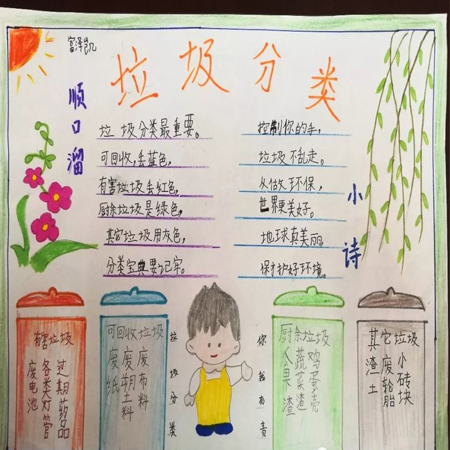 富泽凯
垃圾分类
顺口溜
垃圾分类最重要。
可回收,丢蓝色,
有害垃圾丢红色,
厨余垃圾是绿色,
其它垃圾用灰色,
分类宝典要记牢。
小诗
控制你的手,
垃圾不乱走。
从做环保,
世界更美好。
地球真美丽
保护好环境。
有害垃圾
过期药品
各类灯管
废电池
可回收垃圾
废布料
废塑料
废纸
垃圾分类
你我有责
厨余垃圾
鸡蛋壳
蔬菜渣
果渣
其它垃圾
小砖块
废轮胎
渣土